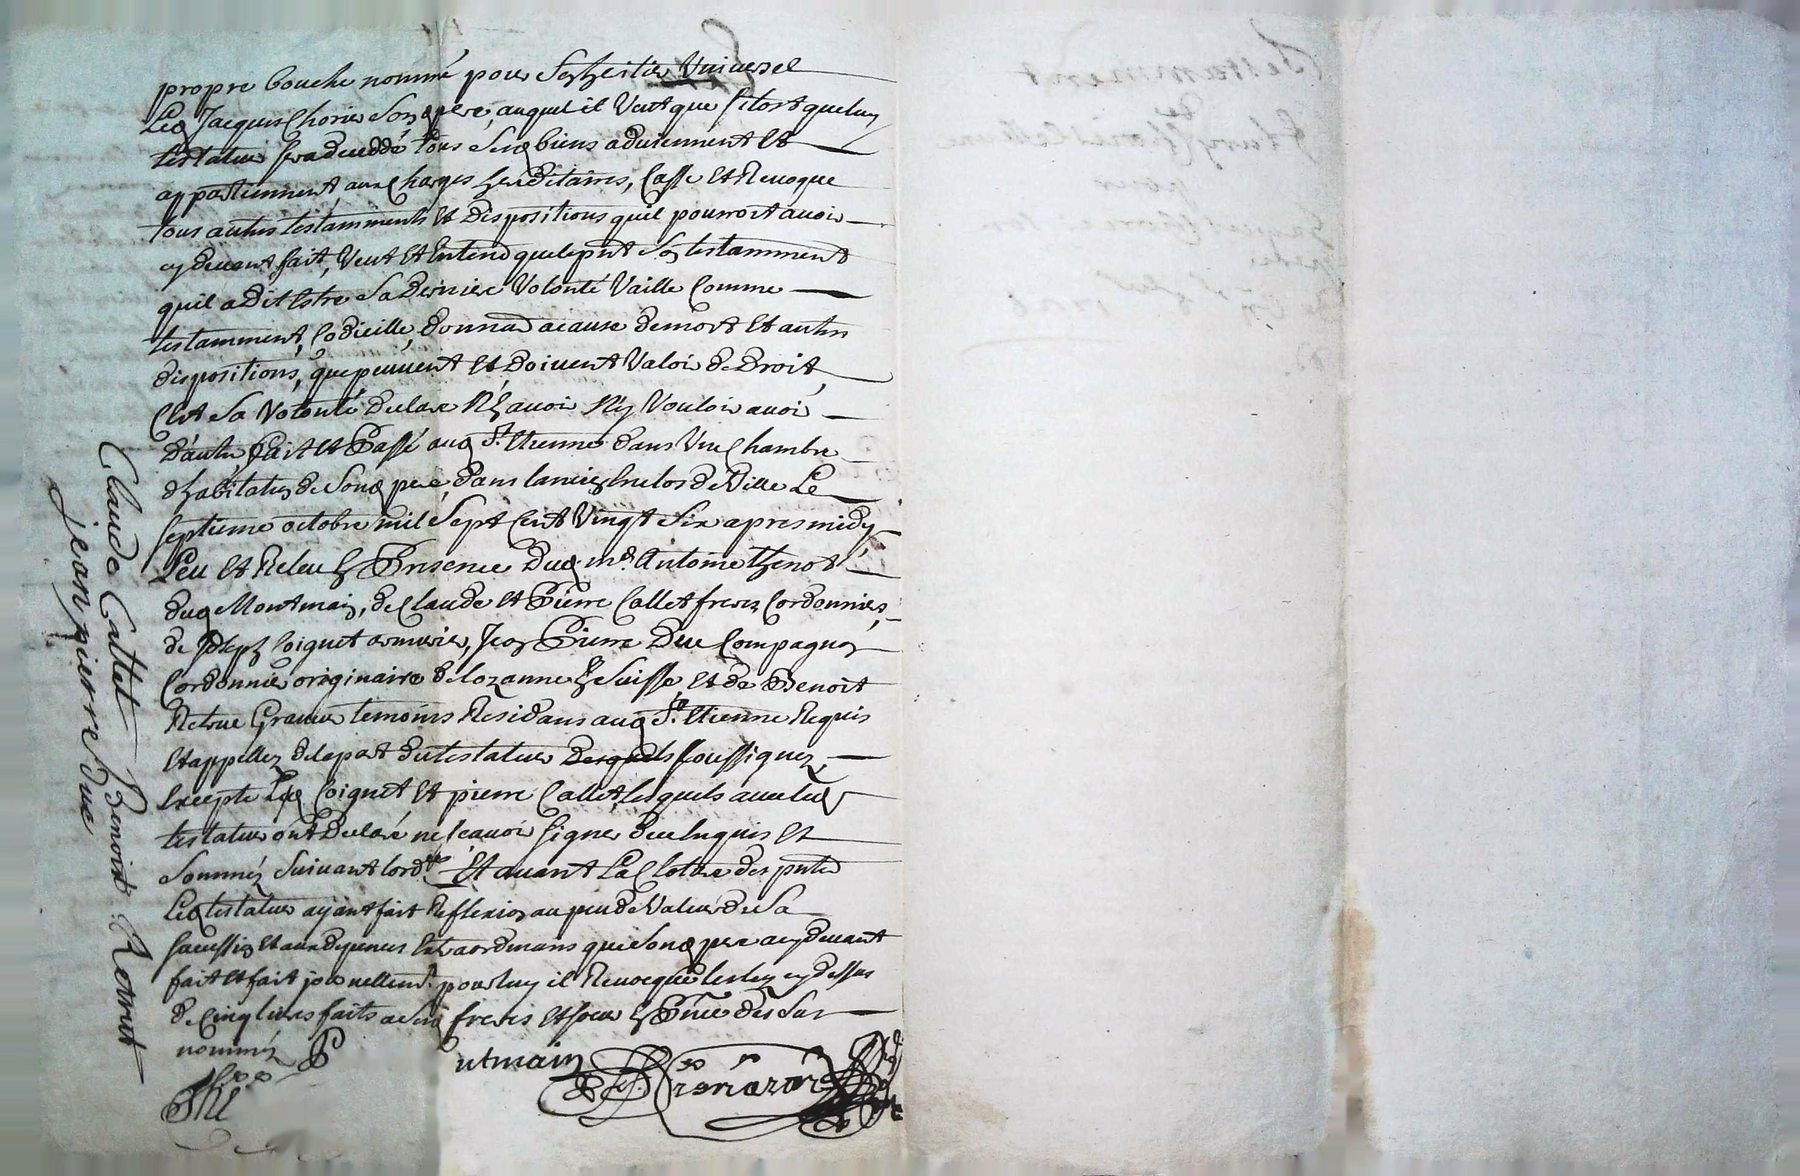 propre bouche nommé pour son heritier Universel
Led Jacques Chorier Sond pere, auquel il Veut que sitost queluy
testateur sera deceddé tous sesd biens adviennent et
appartiennent, aux charges hereditaires, Casse et Revoque
tous autres testamments et dispositions quil pourroit avoir
cydevant fait, Veut et Entend quelepnt son testamment
quil a dit Estre sa Derniere Volonté Vaille Comme
testamment, Codicille, donnaõn acause demort et autres
dispositions, que peuvent et doivent Valoir de Droit,
Cest sa Volonté Declare Nen avoir Ny Vouloir avoir
d'autre fait et Passé aud St. Etienne dans Une Chambre
dhabitation de Sond pere dans lancien Enclos de Ville Le
septieme octobre mil Sept Cent Vingt Six apres midy
Leu et Releu En Presence Dud mr. Antoine thenot
dud Montmain, de Claude et Pierre Callet freres Cordonniers,
de Joseph Coignet armurier, Jean Pierre Due Compagnon
Cordonnier originaire de Lozanne En Suisse, et de Benoit
Retrue Graveur temoins Residans aud St. Etienne Requis
et appellez de la part du testateur Desquels soussignez,
Excepté Led Coignet et pierre Callet, lesquels avec led
testateur ont declaré ne scavoir signer deue Enquis et
Sommés suivant lordce Et avant La Cloture des pntes
Led testateur ayant fait Reflexion au peu de Valeur de Sa
succession et aux depences Extraordinaires que Sond pere a cydevant
fait et fait journellemt. pour luy il Revocque les legz cy dessus
de Cinq livres faits a sesd freres et soeur En Pnce des Sus
nommés
ntmain
Claude Callet Benoist Retrut
jean pierre due
Testament
Chorier
pour
Jacques Chorier son
pere